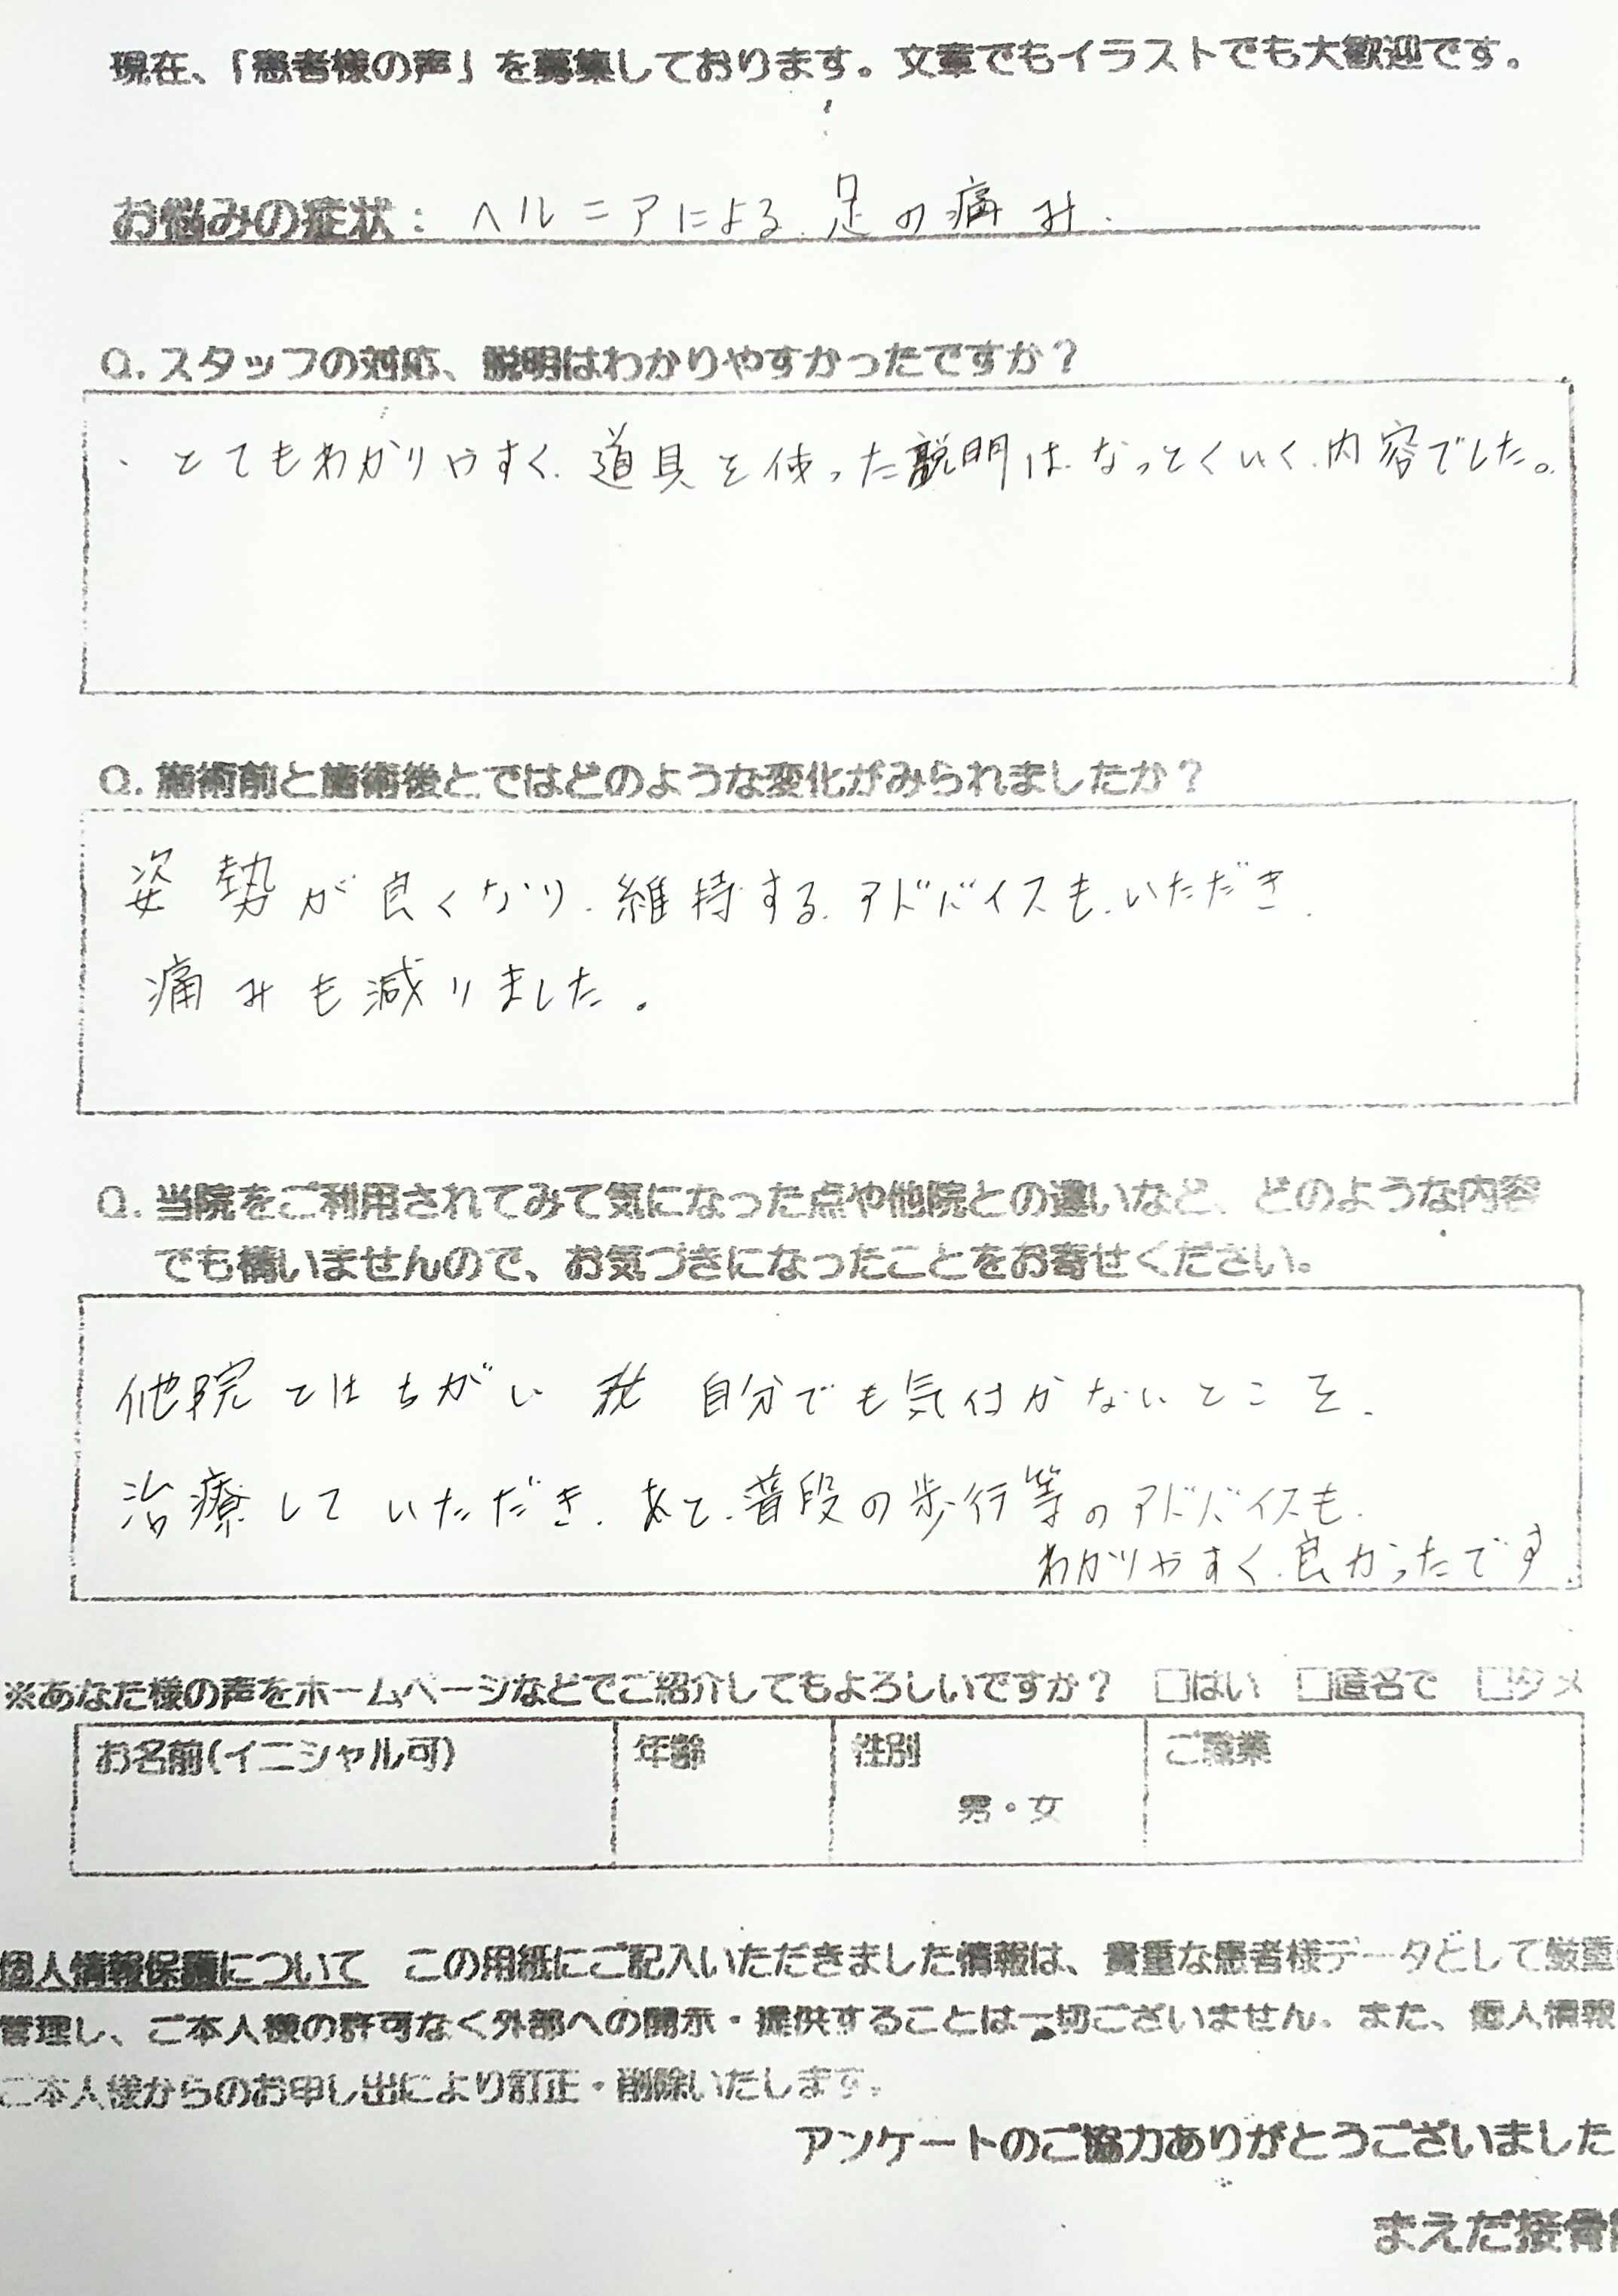 現在、「患者様の声」を募集しております。文章でもイラストでも大歓迎です。
お悩みの症状： ヘルニアによる足の痛み.
Q. スタッフの対応、説明はわかりやすかったですか？
・とてもわかりやすく、道具を使った説明は、なっとくいく内容でした。
Q. 施術前と施術後とではどのような変化がみられましたか？
姿勢が良くなり、維持する、アドバイスも、いただき、
痛みも減りました。
Q. 当院をご利用されてみて気になった点や他院との違いなど、どのような内容
でも構いませんので、お気づきになったことをお寄せください。
他院とはちがい 自分でも気付かないところを、
治療していただき、あと、普段の歩行等のアドバイスも、
わかりやすく、良かったです.
※あなた様の声をホームページなどでご紹介してもよろしいですか？ □はい □匿名で □ダメ
お名前(イニシャル可) 年齢 性別 ご職業
男・女
個人情報保護について この用紙にご記入いただきました情報は、貴重な患者様データとして厳重
管理し、ご本人様の許可なく外部への開示・提供することは一切ございません。また、個人情報
ご本人様からのお申し出により訂正・削除いたします。
アンケートのご協力ありがとうございました
まえだ接骨